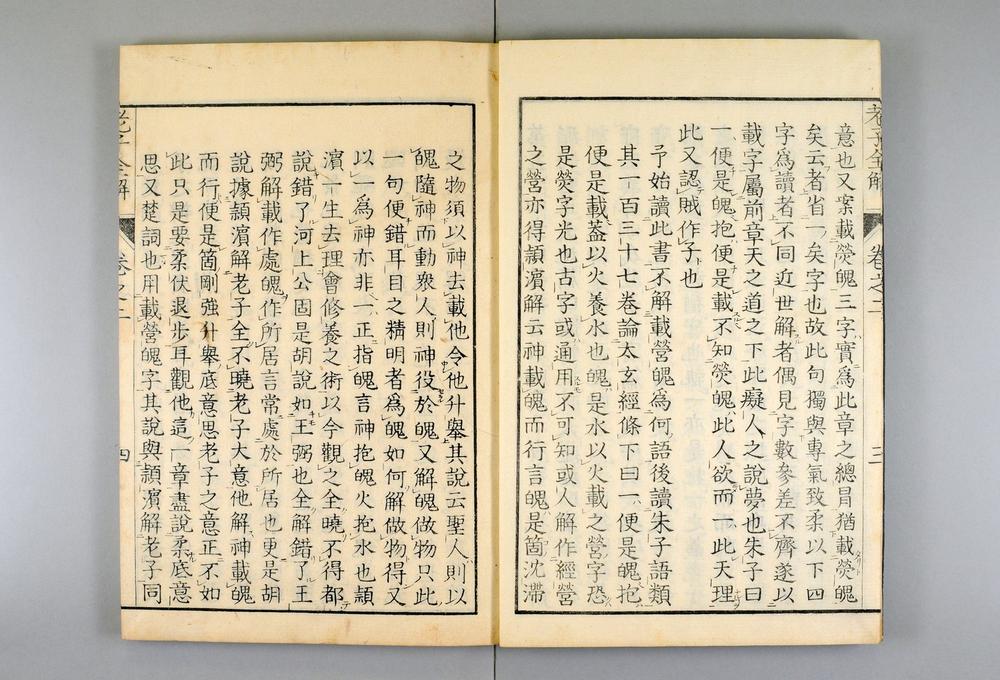 老子全解
卷之二
三
意也又案載熒魄三字實爲此章之總冐猶載熒魄
矣云者省一矣字也故此句獨與專氣致柔以下四
字爲讀者不同近世解者偶見字數參差不齊遂以
載字屬前章天之道之下此癡人之說夢也朱子曰
便是魄抱便是載不知熒魄此人欲而一此天理
此又認賊作子也
予始讀此書不解載營魄爲何語後讀朱子語類
其一百三十七卷論太玄經條下曰一便是魄抱
便是載蓋以火養水也魄是水以火載之營字恐
是熒字光也古字或通用不可知或人解作經營
之營亦得頴濱解云神載魄而行言魄是箇沈滯
之物須以神去載他令他升擧其說云聖人則以
魄隨神而動衆人則神役於魄又解魄做物只此
一句便錯耳目之精明者爲魄如何解做物得又
以一爲神亦非一正指魄言神抱魄火抱水也頴
濱一生去理會修養之術以今觀之全曉不得都
說錯了河上公固是胡說如王弼也全解錯了王
弼解載作處魄作所居言常處於所居也更是胡
說據頴濱解老子全不曉老子大意他解神載魄
而行便是箇剛強升擧底意思老子之意正不如
此只是要柔伏退步耳觀他這一章盡說柔底意
思又楚詞也用載營魄字其說與頴濱解老子同
老子全解
卷之二
四